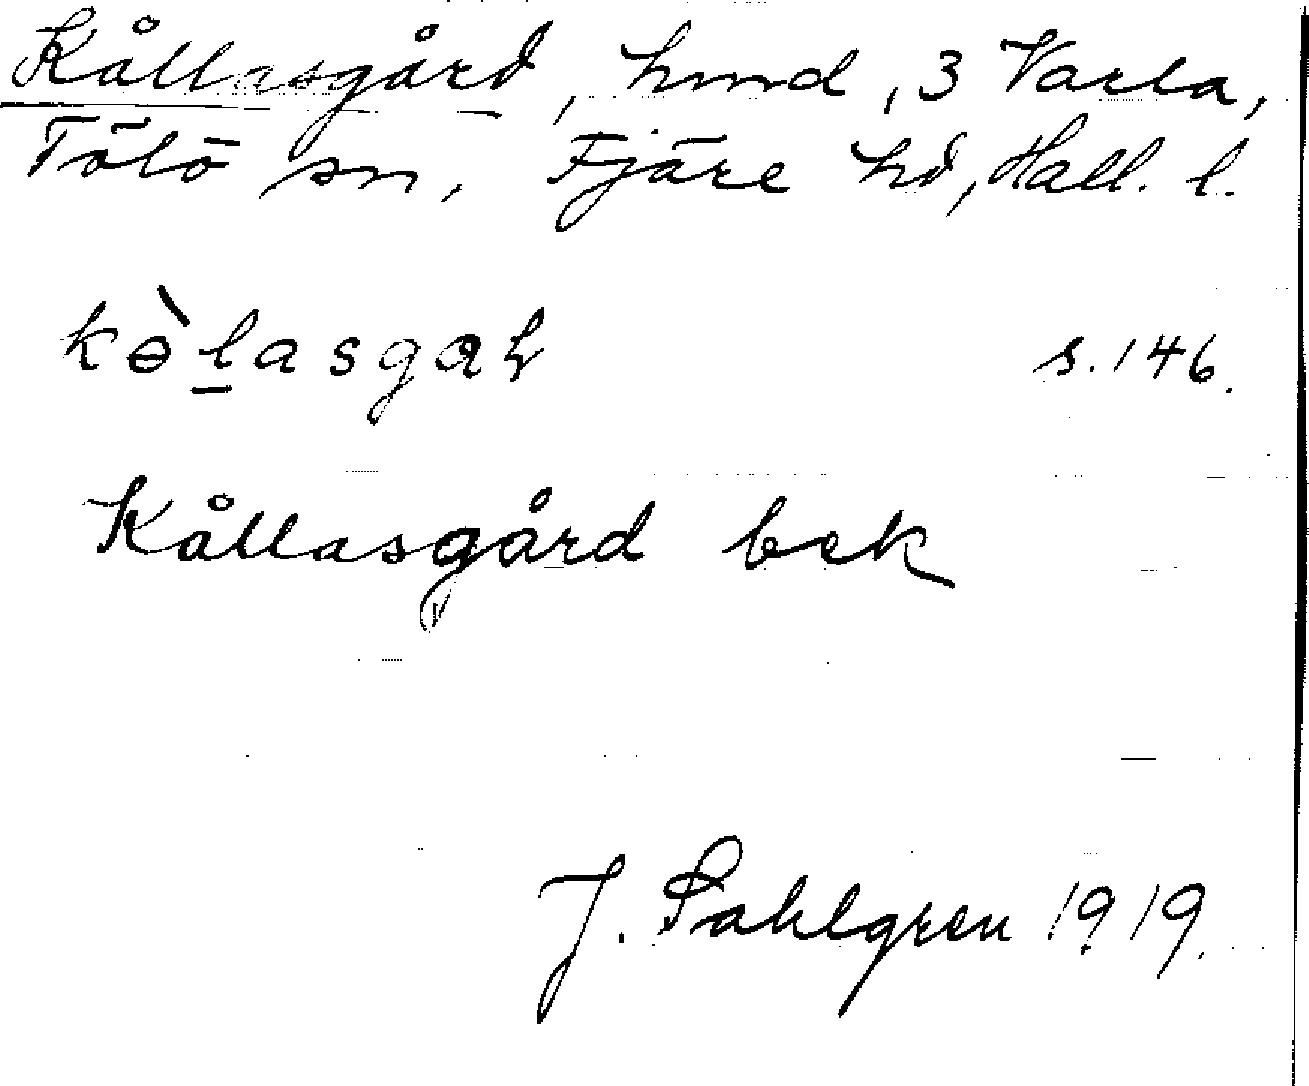 Kållasgård, hmd, 3 Varla,
Tölö sn, Fjäre hd, Hall. l.
kɵ̀l̠asgaꞕ s. 146.
Kållasgård bek
J. Sahlgren 1919.